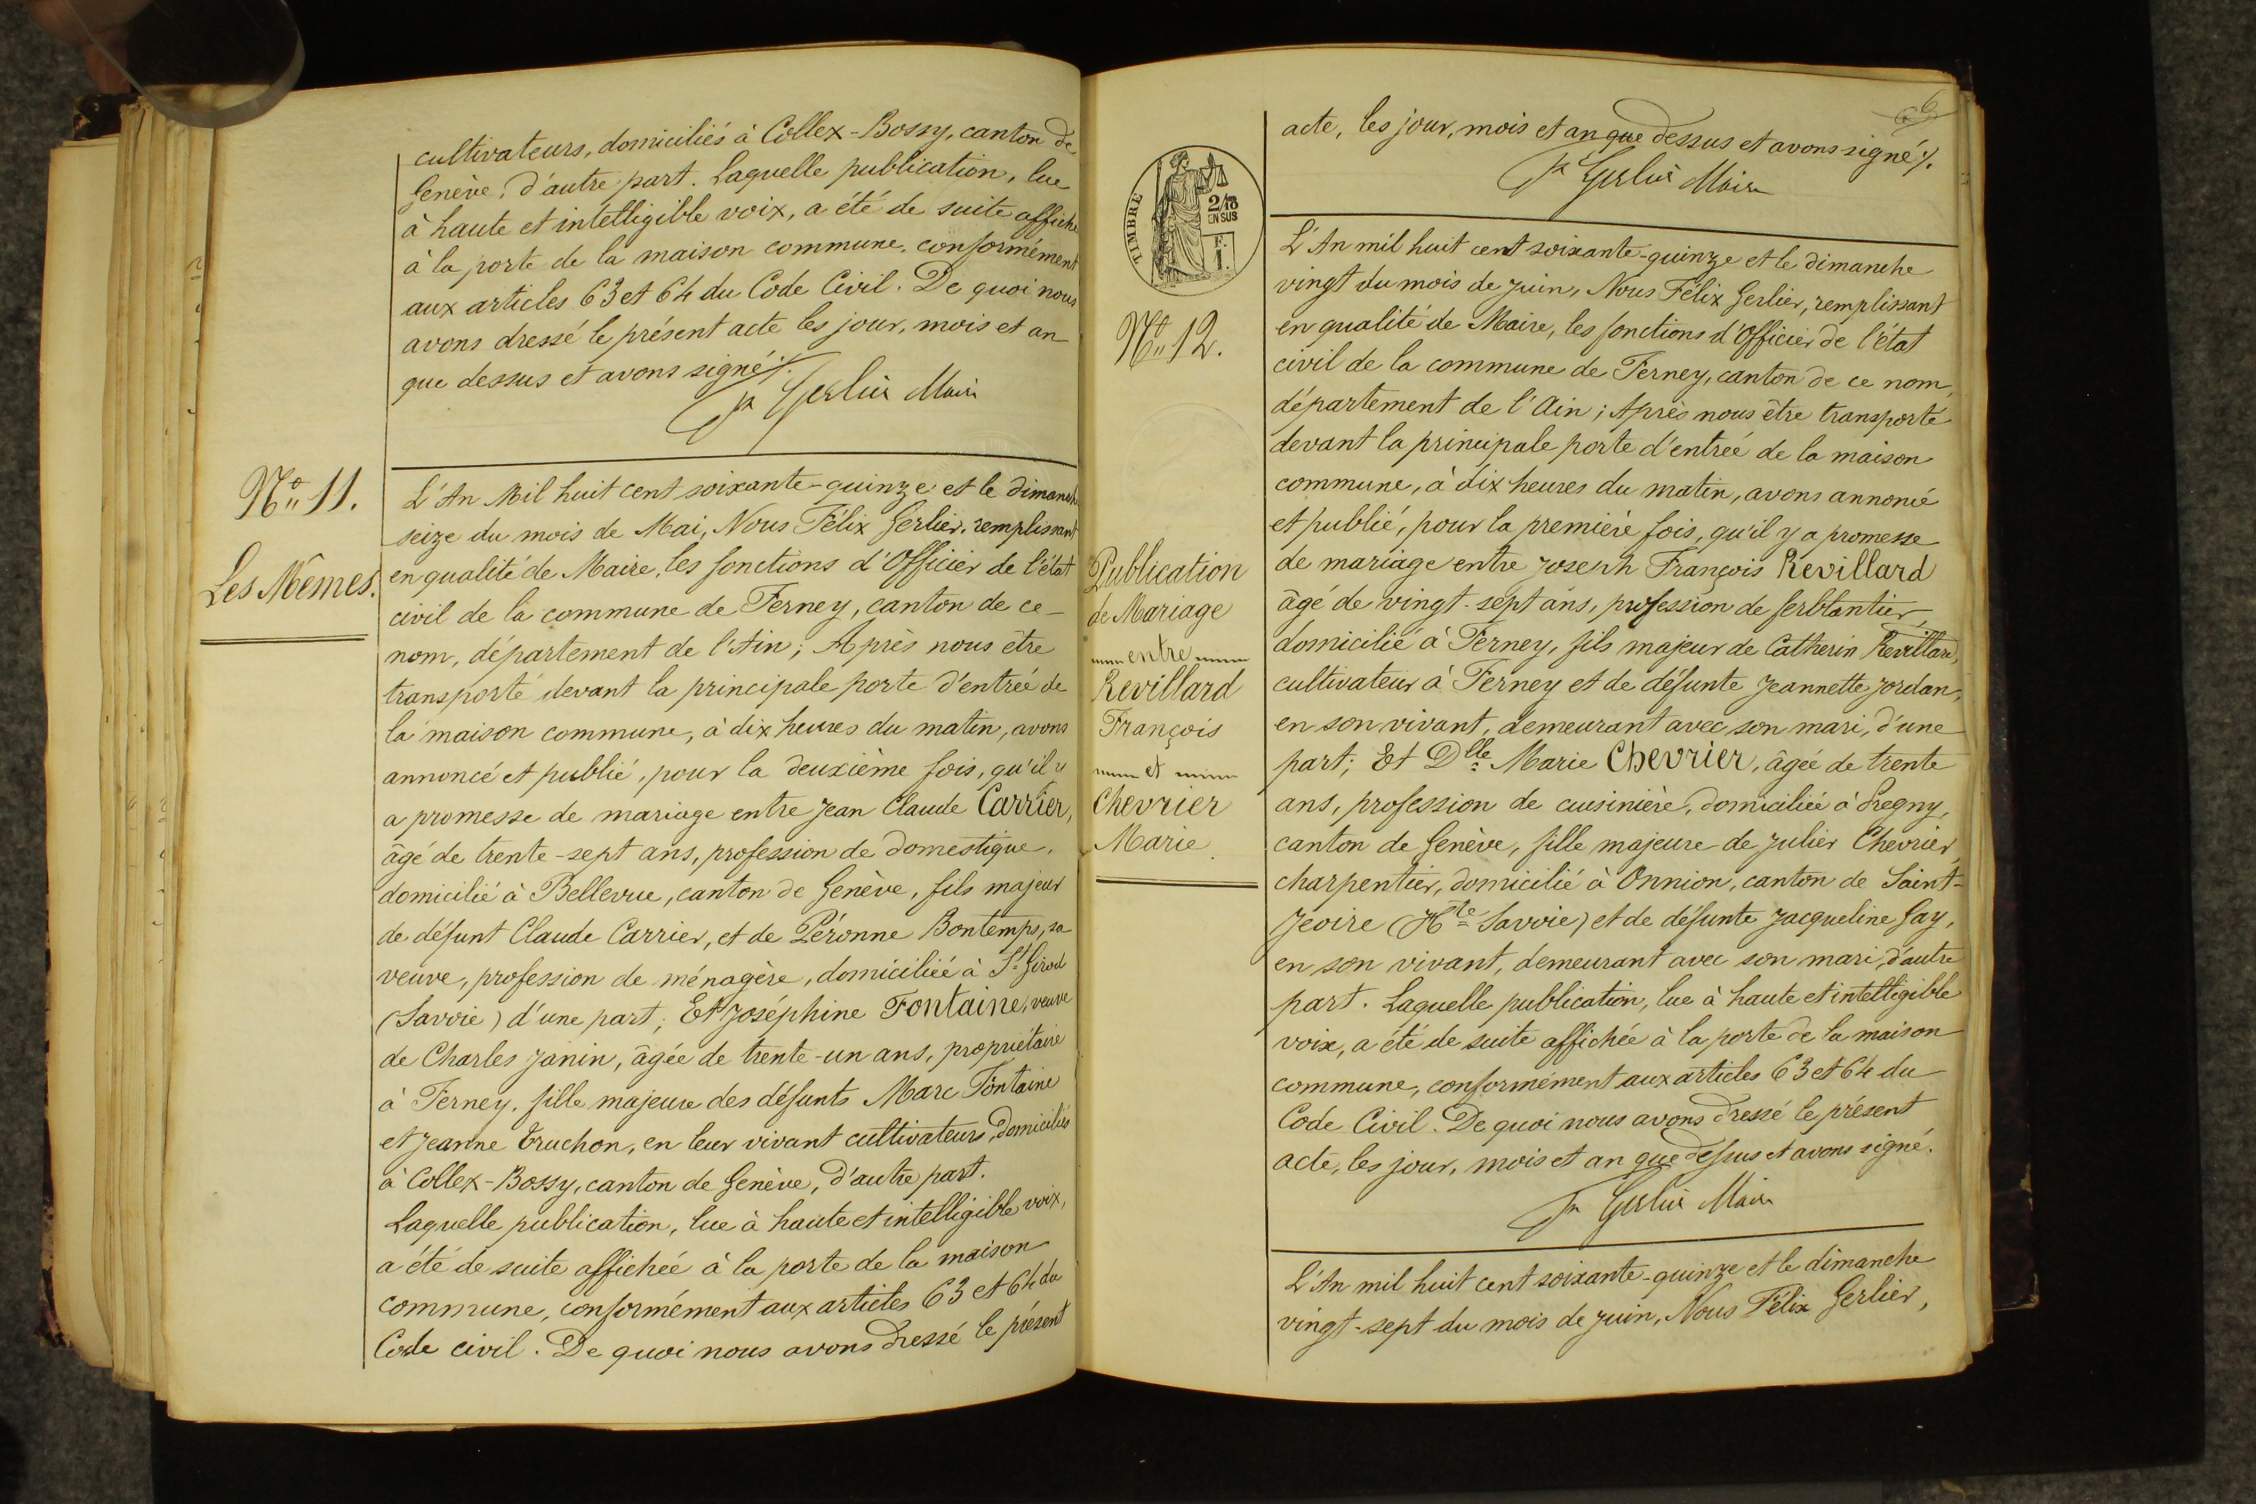 cultivateurs, domiciliés à Collex-Bossy, canton de
Genève, d'autre part. Laquelle publication, lue
à haute et intelligible voix, a été de suite affiché
à la porte de la maison commune, conformément
aux articles 63 et 64 du Code Civil. De quoi nous
avons dressé le présent acte les jour, mois et an
que dessus et avons signé ./.
Gerlier Maire
No 11.
Les Mêmes.
L'An Mil huit cent soixante-quinze et le dimanche
seize du mois de Mai, Nous Félix Gerlier, remplissant
en qualité de Maire, les fonctions d'Officier de l'état
civil de la commune de Ferney, canton de ce
nom, département de l'Ain; Après nous être
transporté devant la principale porte d'entreé de
la maison commune, à dix heures du matin, avons
annoncé et publié, pour la deuxième fois, qu'il y
a promesse de mariage entre Jean Claude Carrier,
âgé de trente-sept ans, profession de domestique,
domicilié à Bellevue, canton de Genève, fils majeur
de défunt Claude Carrier, et de Péronne Bontemps, sa
veuve, profession de ménagère, domiciliée à St Girod
(Savoie) d'une part; Et Joséphine Fontaine, veuve
de Charles Janin, âgée de trente-un ans, propriétaire
à Ferney, fille majeure des défunts Marc Fontaine
et Jeanne Truchon, en leur vivant cultivateurs, domiciliés
à Collex-Bossy, canton de Genève, d'autre part.
Laquelle publication, lue à haute et intelligible voix,
a été de suite affichée à la porte de la maison
commune, conformément aux articles 63 et 64 du
Code civil. De quoi nous avons dressé le présent
6
acte, les jour, mois et an que dessus et avons signé ./.
Gerlier Maire
TIMBRE
2/10
EN SUS
F.
1.
No 12.
Publication
de Mariage
entre
Revillard
François
et
Chevrier
Marie
L'An mil huit cent soixante-quinze et le dimanche
vingt du mois de juin, Nous Félix Gerlier, remplissant
en qualité de Maire, les fonctions d'Officier de l'état
civil de la commune de Ferney, canton de ce nom,
département de l'Ain; Après nous être transporté
devant la principale porte d'entreé de la maison
commune, à dix heures du matin, avons annoncé
et publié, pour la première fois, qu'il y a promesse
de mariage entre Joseph François Revillard
âgé de vingt-sept ans, profession de ferblantier,
domicilié à Ferney, fils majeur de Catherin Revillard,
cultivateur à Ferney et de défunte Jeannette Jordan,
en son vivant, demeurant avec son mari, d'une
part; Et Dlle Marie Chevrier, âgée de trente
ans, profession de cuisinière, domiciliée à Pregny,
canton de Genève, fille majeure de Julier Chevrier,
charpentier, domicilié à Onnion, canton de Saint-
Jeoire (Hte Savoie) et de défunte Jacqueline Gay,
en son vivant, demeurant avec son mari, d'autre
part. Laquelle publication, lue à haute et intelligible
voix, a été de suite affichée à la porte de la maison
commune, conformément aux articles 63 et 64 du
Code Civil. De quoi nous avons dressé le présent
acte, les jour, mois et an que dessus et avons signé.
Gerlier Maire
L'An mil huit cent soixante-quinze et le dimanche
vingt-sept du mois de juin, Nous Félix Gerlier,